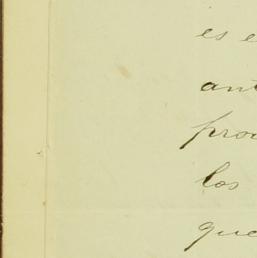 es e
ant
prou
los
que